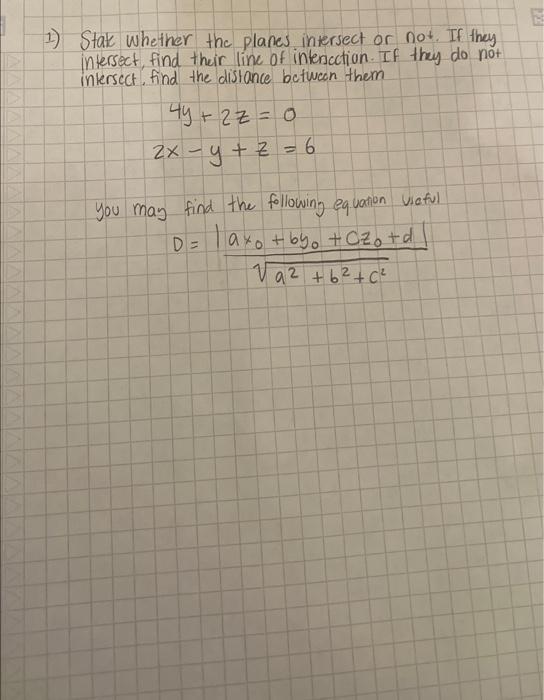 1) State whether the planes intersect or not. If they
intersect, find their line of intersection. If they do not
intersect, find the distance between them
4y + 2z = 0
2x - y + z = 6
you may find the following equation useful
D = |ax₀ + by₀ + cz₀ + d|
√a² + b² + c²